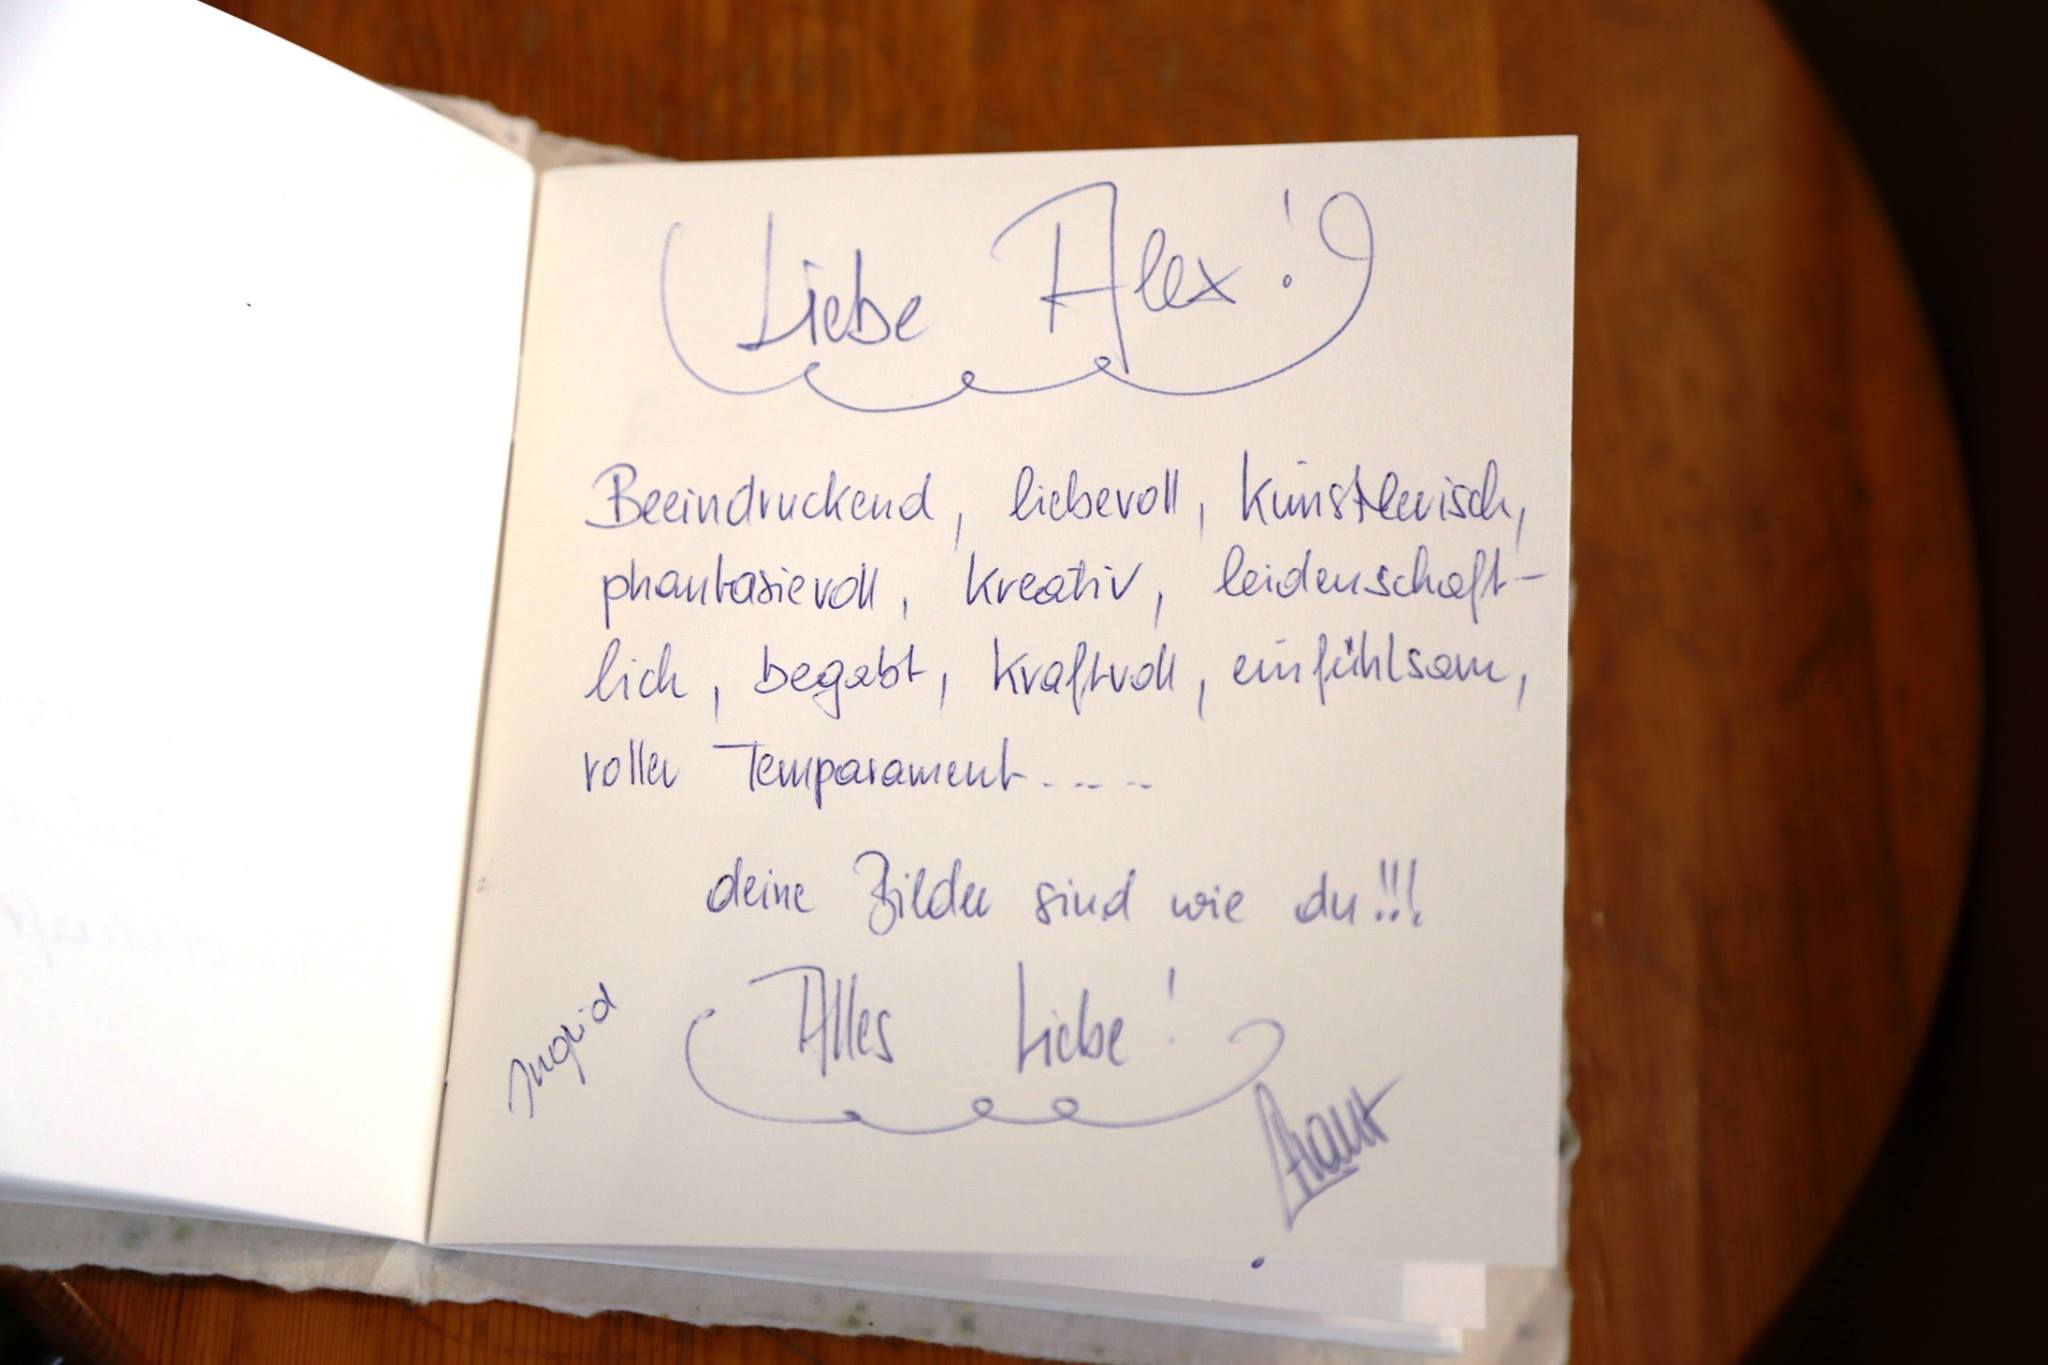 Liebe Alex!
Beeindruckend, liebevoll, künstlerisch,
phantasievoll, kreativ, leidenschaft-
lich, begabt, kraftvoll, einfühlsam,
voller Temparament.....
deine Bilder sind wie du!!!
Alles Liebe!
Ingrid